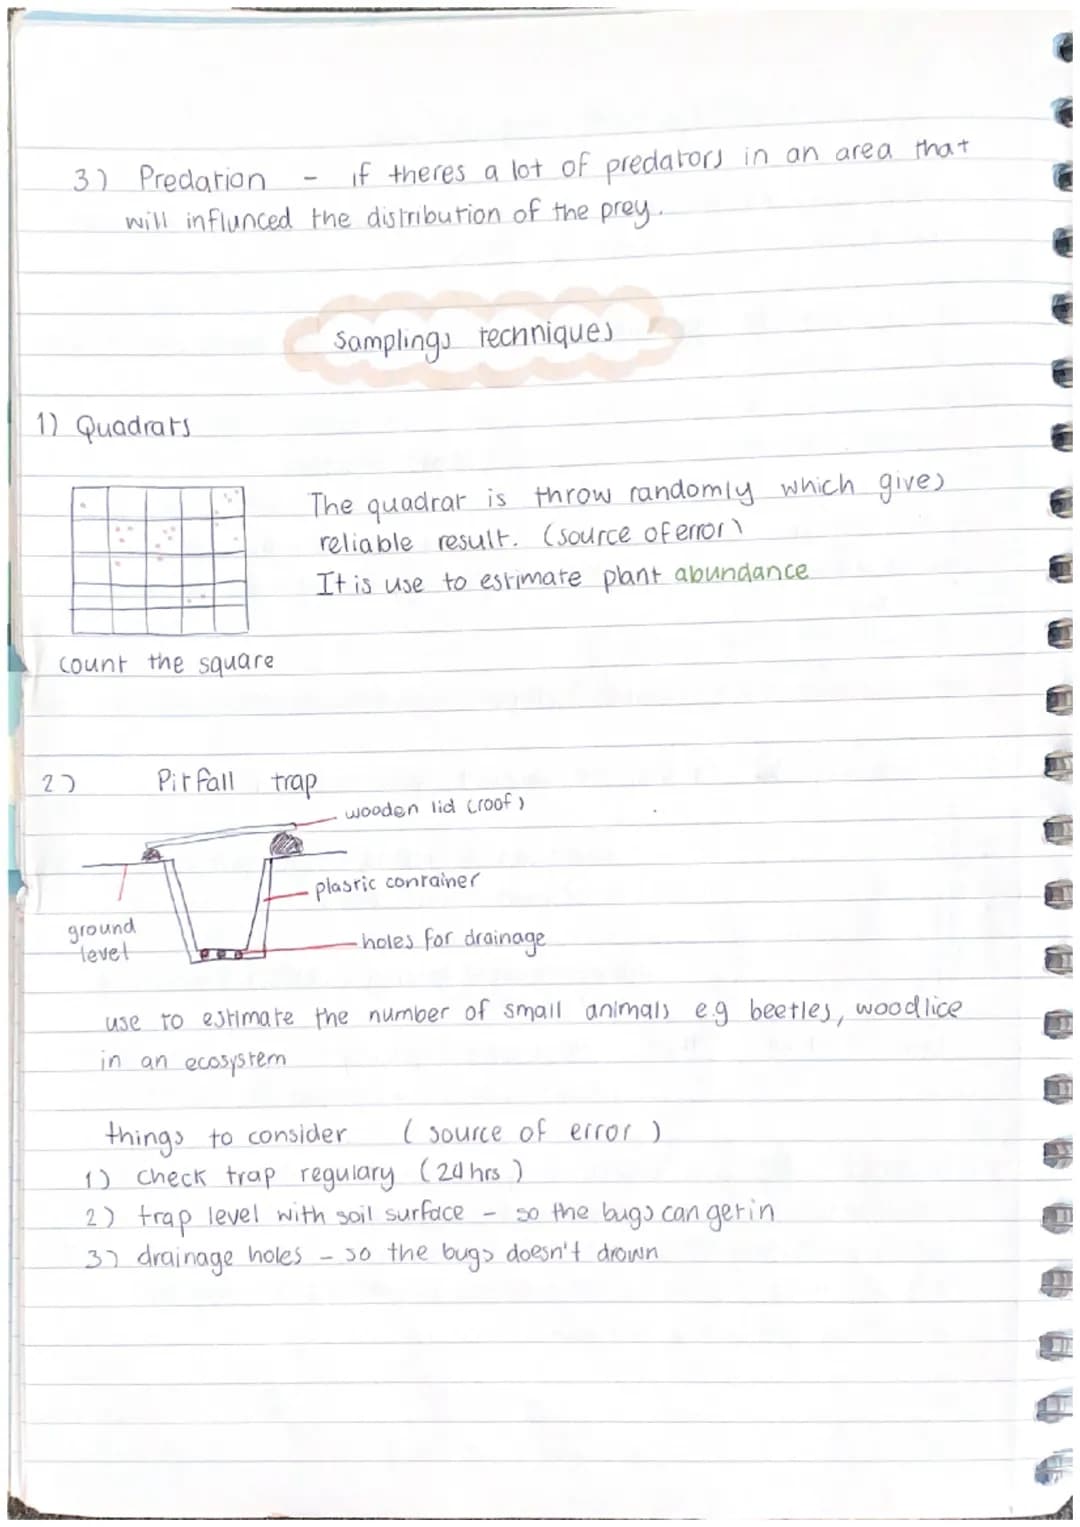 3) Predation - if theres a lot of predators in an area that
will influnced the distribution of the prey.
Samplings techniques
1) Quadrats
The quadrat is throw randomly which gives
reliable result. (source of error)
It is use to estimate plant abundance
count the square
2) Pitfall trap
wooden lid (roof)
plastic container
ground
level
holes for drainage
use to estimate the number of small animals e.g beetles, woodlice
in an ecosystem
things to consider (source of error)
1) Check trap regulary (24hrs)
2) trap level with soil surface - so the bugs can get in
3) drainage holes - so the bugs doesn't drown